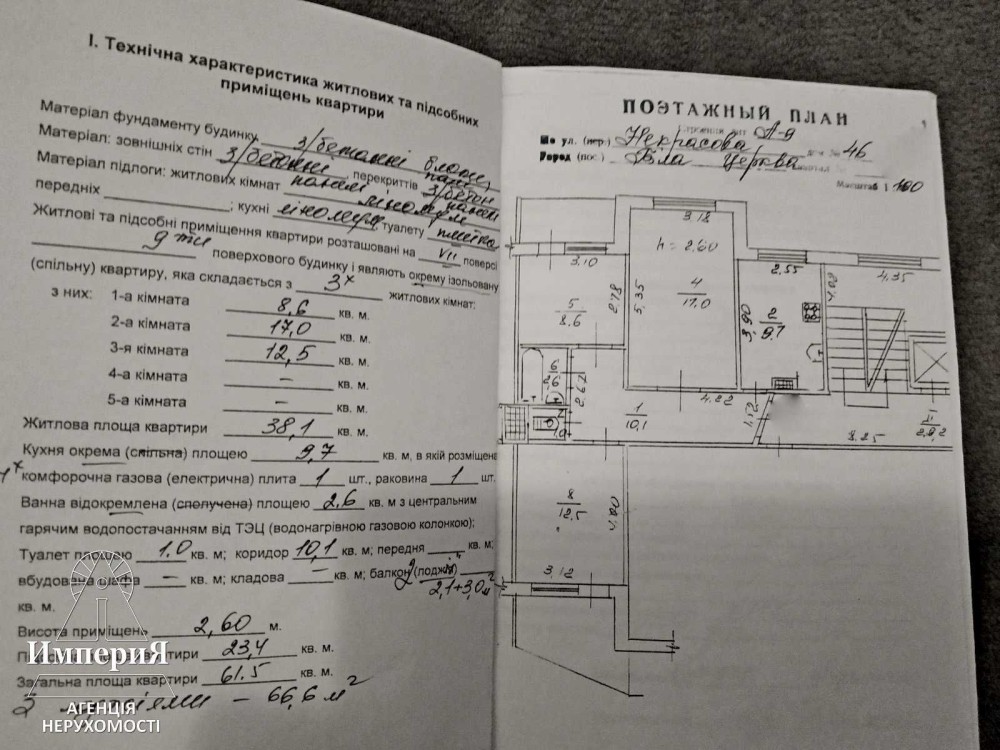 І. Технічна характеристика житлових та підсобних
приміщень квартири
Матеріал фундаменту будинку з/бетонні блоки,
Матеріал: зовнішніх стін з/бетонні, перекриттів з/бетон
Матеріал підлоги: житлових кімнат лінолеум
передніх ; кухні лінолеум туалету плитка
Житлові та підсобні приміщення квартири розташовані на VII поверсі
9 ти поверхового будинку і являють окрему ізольовану
(спільну) квартиру, яка складається з 3х житлових кімнат:
з них: 1-а кімната 8,6 кв. м.
2-а кімната 17,0 кв. м.
3-я кімната 12,5 кв. м.
4-а кімната – кв. м.
5-а кімната – кв. м.
Житлова площа квартири 38,1 кв. м.
Кухня окрема (спільна) площею 9,7 кв. м, в якій розміщена
4х комфорочна газова (електрична) плита 1 шт., раковина 1 шт.
Ванна відокремлена (сполучена) площею 2,6 кв. м з центральним
гарячим водопостачанням від ТЭЦ (водонагрівною газовою колонкою);
Туалет площею 1.0 кв. м; коридор 10,1 кв. м; передня кв. м;
вбудована шафа – кв. м; кладова – кв. м; балкон (лоджія) 2
2,1+3,0 м²
кв. м.
Висота приміщень 2,60 м.
площа квартири 23,4 кв. м.
Загальна площа квартири 61.5 кв. м.
З лоджіями – 66,6 м²
ИмпериЯ
АГЕНЦІЯ
НЕРУХОМОСТІ
ПОЭТАЖНЫЙ ПЛАН
Строения лит А-9
По ул. (пер.) Некрасова дом № 46
Город (пос.) Біла Церква
Масштаб 1:100
3.18
h = 2.60
3.10
2.55
4.35
4.08
5
8.6
2.78
5.35
4
17,0
3.90
2
9.7
6
2.6
2.62
7
1.0
1
10,1
4.22
1.52
9.25
I-1
8
12.5
4.00
3.12